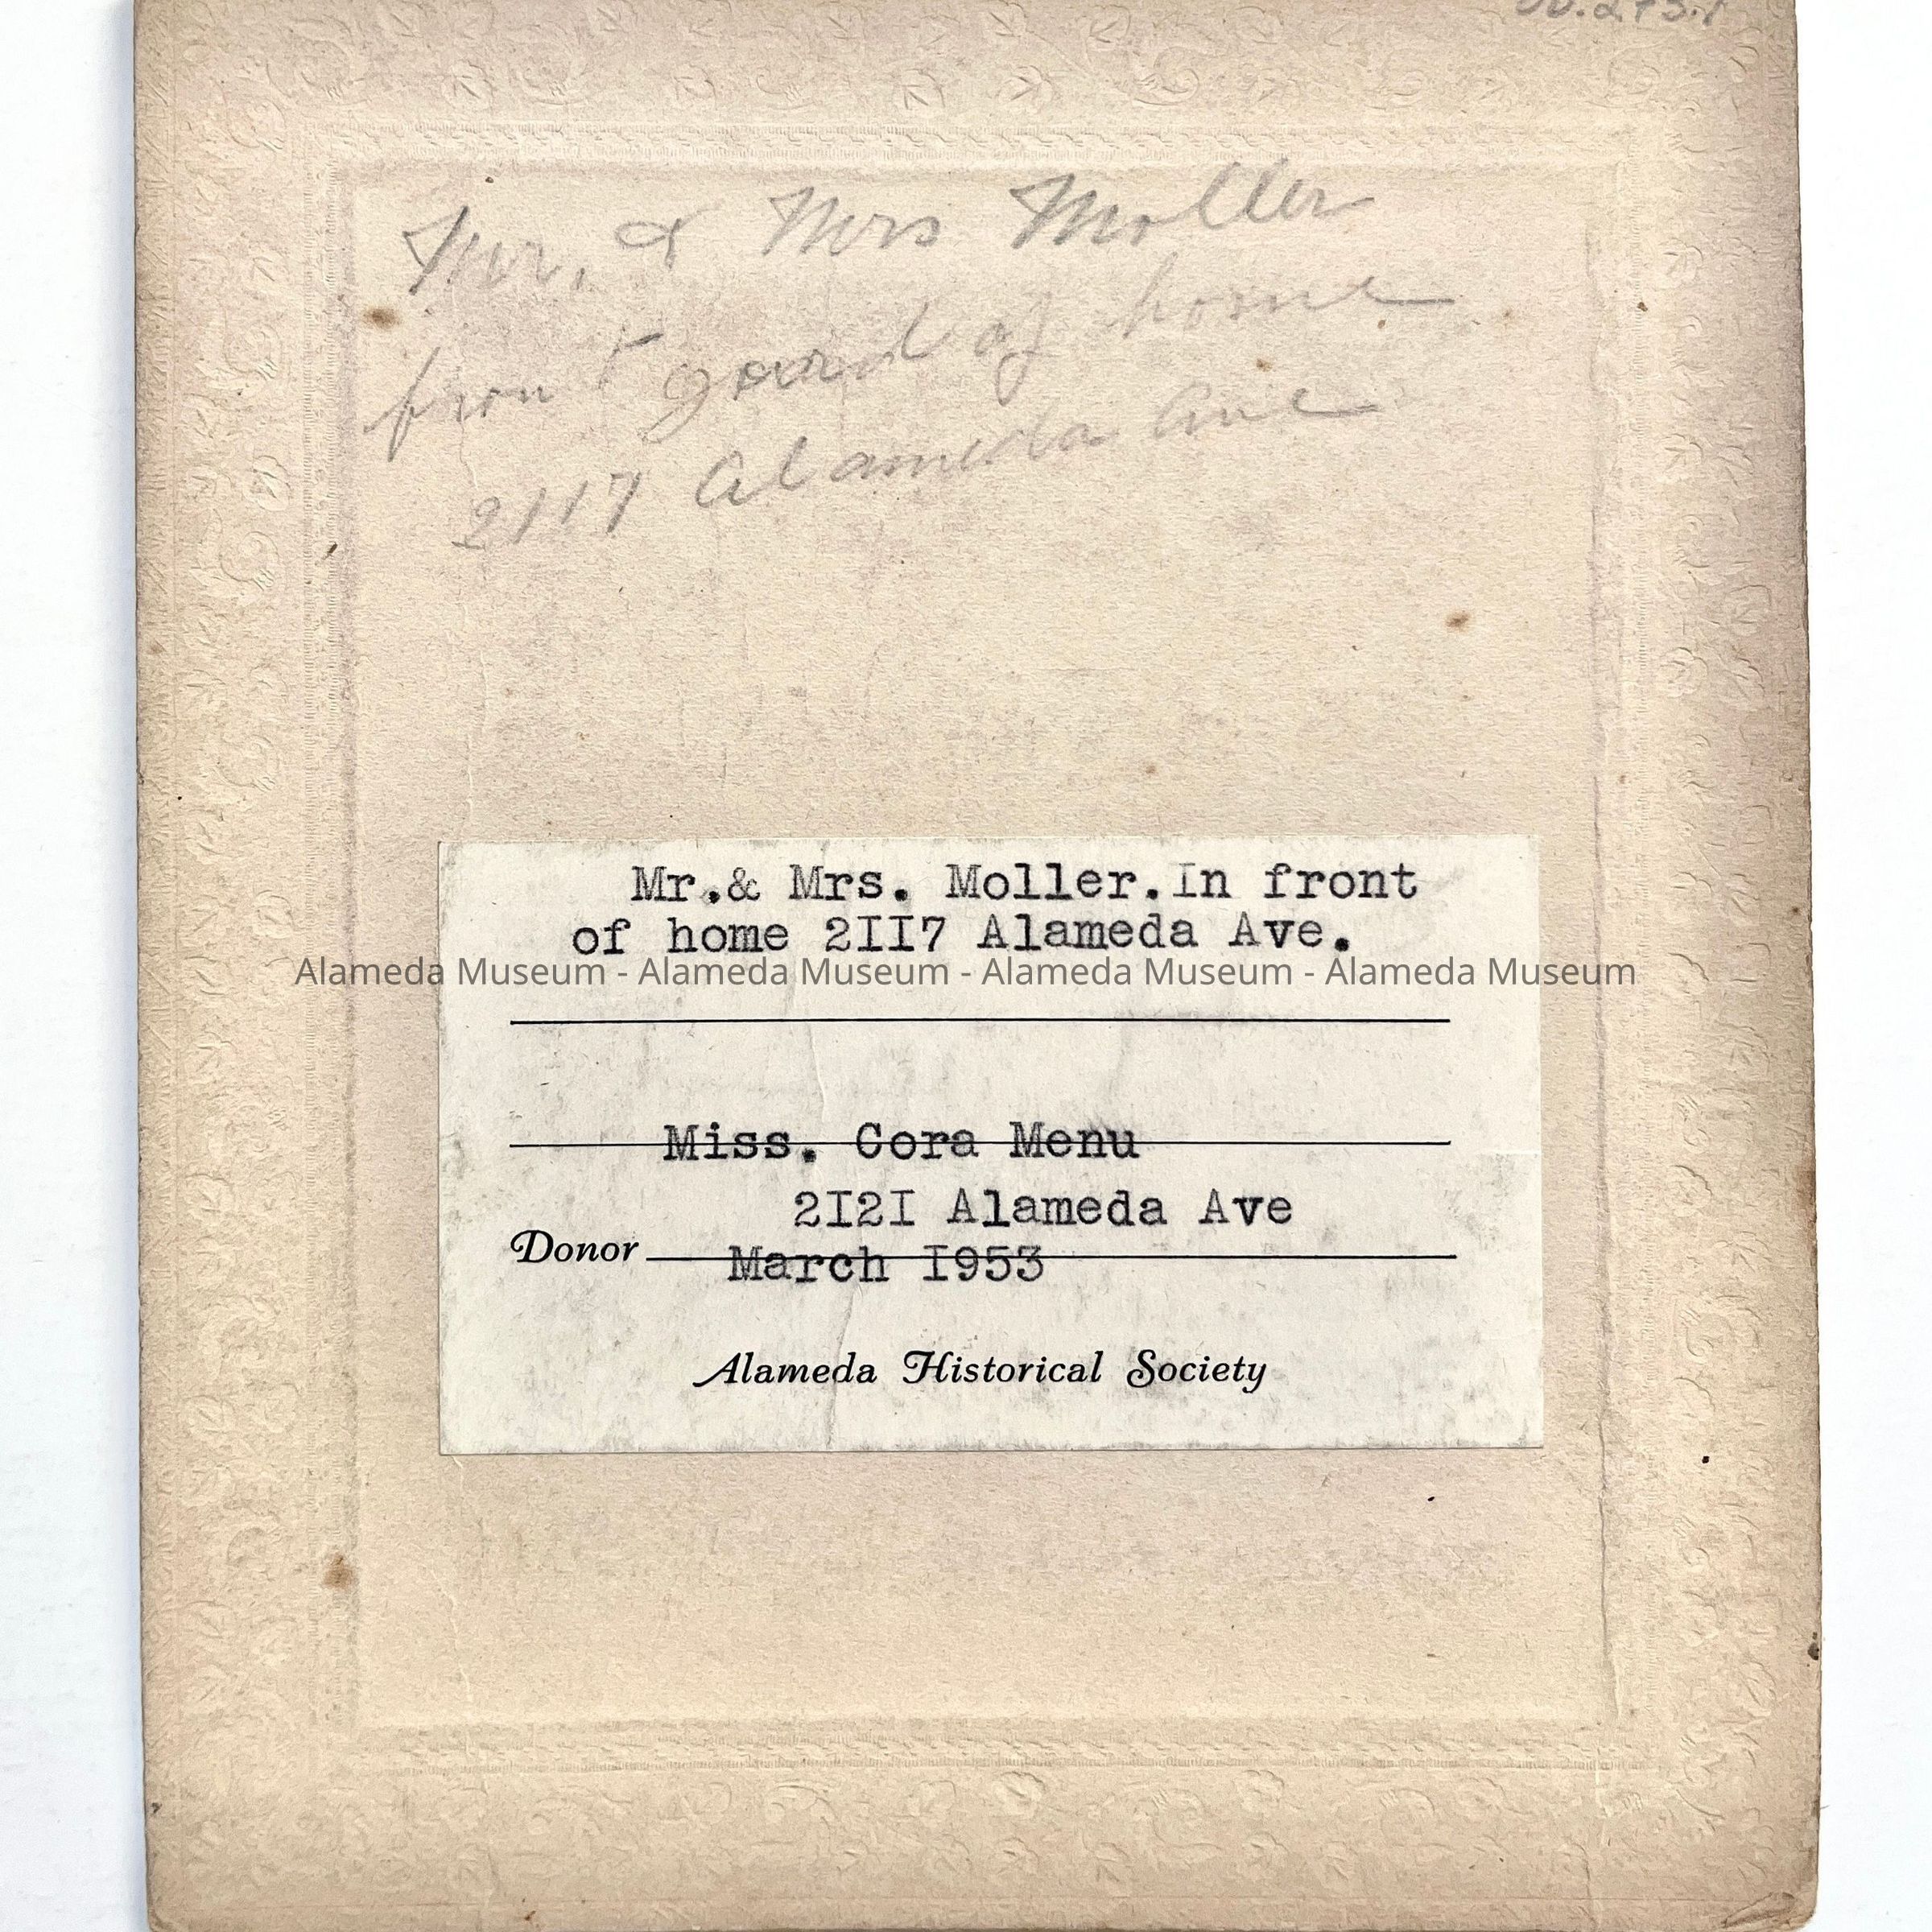 Mr. & Mrs Moller
front yard of home
2117 Alameda Ave
Mr.& Mrs. Moller.In front
of home 2II7 Alameda Ave.
Alameda Museum - Alameda Museum - Alameda Museum - Alameda Museum
Miss. Cora Menu
2I2I Alameda Ave
Donor March I953
Alameda Historical Society